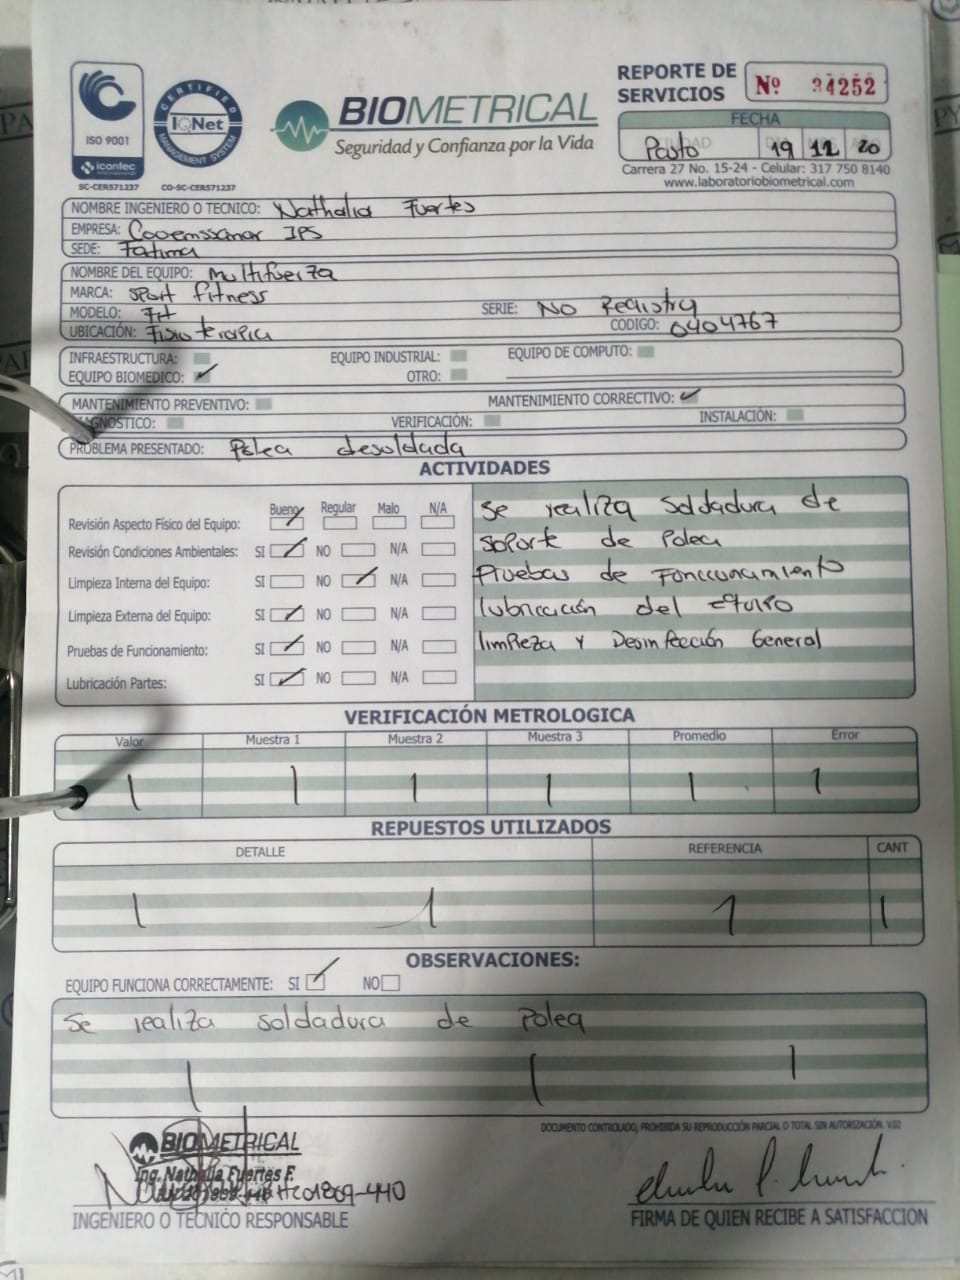 CERTIFIED
IQNet
MANAGEMENT SYSTEM
ISO 9001
icontec
SC-CER571237
CO-SC-CER571237
BIOMETRICAL
Seguridad y Confianza por la Vida
REPORTE DE SERVICIOS
Nº 34252
FECHA
Pasto 19 12 20
Carrera 27 No. 15-24 - Celular: 317 750 8140
www.laboratoriobiometrical.com
NOMBRE INGENIERO O TECNICO: Nathalia Fuertes
EMPRESA: Cooemssanar IPS
SEDE: Fatima
NOMBRE DEL EQUIPO: Multifuerza
MARCA: Sport fitness
MODELO: SERIE: NO Registra
UBICACIÓN: Fisioterapia CODIGO: 0404767
INFRAESTRUCTURA: EQUIPO INDUSTRIAL: EQUIPO DE COMPUTO:
EQUIPO BIOMEDICO: OTRO:
MANTENIMIENTO PREVENTIVO: MANTENIMIENTO CORRECTIVO:
DIAGNOSTICO: VERIFICACIÓN: INSTALACIÓN:
PROBLEMA PRESENTADO: Polea desoldada
ACTIVIDADES
Bueno Regular Malo N/A
Revisión Aspecto Físico del Equipo:
Revisión Condiciones Ambientales: SI NO N/A
Limpieza Interna del Equipo: SI NO N/A
Limpieza Externa del Equipo: SI NO N/A
Pruebas de Funcionamiento: SI NO N/A
Lubricación Partes: SI NO N/A
Se realiza soldadura de
soporte de Polea
Pruebas de Fonccionamiento
lubricación del equipo
limpieza y Desinfección General
VERIFICACIÓN METROLOGICA
Valor Muestra 1 Muestra 2 Muestra 3 Promedio Error
REPUESTOS UTILIZADOS
DETALLE REFERENCIA CANT
OBSERVACIONES:
EQUIPO FUNCIONA CORRECTAMENTE: SI NO
Se realiza soldadura de Polea
DOCUMENTO CONTROLADO, PROHIBIDA SU REPRODUCCIÓN PARCIAL O TOTAL SIN AUTORIZACIÓN. V.02
BIOMETRICAL
Ing. Nathalia Fuertes F.
INGENIERO O TECNICO RESPONSABLE
FIRMA DE QUIEN RECIBE A SATISFACCION